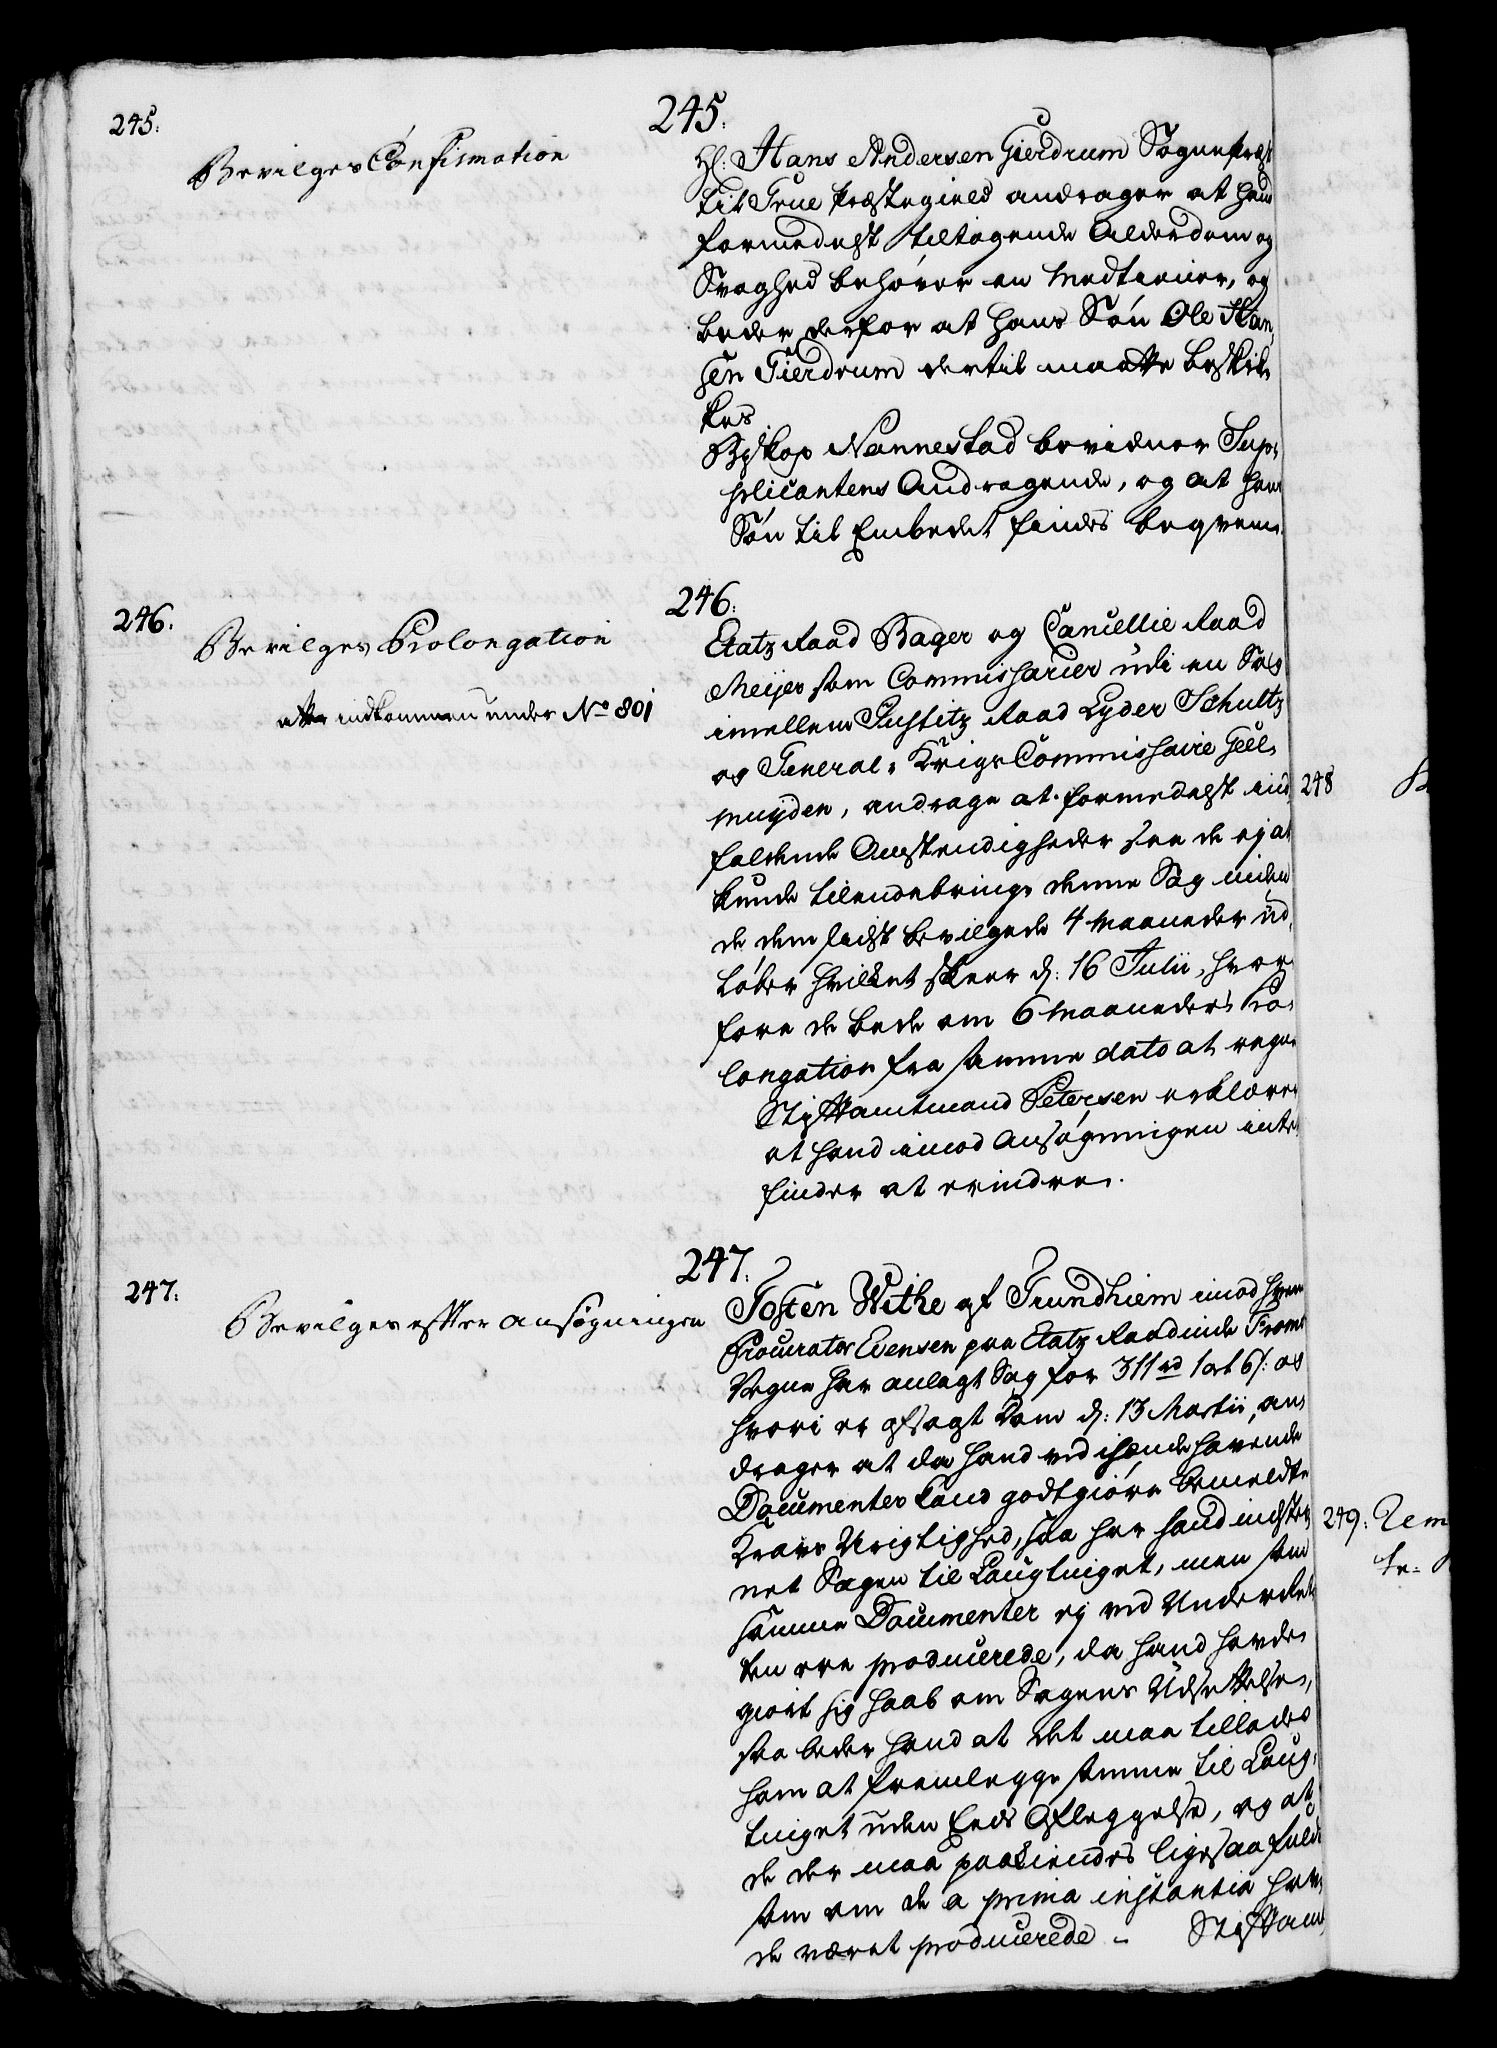 245.
Bevilges Confirmation
245.
Hl: Hans Andersen Gierdrum Sognepræst
til Grue Præstegield andrager at hand
formedelst tiltagende Alderdom og
Svaghed behøver en Medtiener, og
beder derfor at hans Søn Ole Han,
sen Gierdrum dertil maatte beskik,
kes
Biskop Nannestad bevidner Sup,
plicantens Andragende, og at hans
Søn til Embedet findes beqvem.
246.
Bevilges Prolongation
atter indkommen under No 801
246.
Etatz Raad Bager og Cancellie Raad
Meijer som Commissarier udi en Sag
imellem Justitz Raad Lyder Schultz
og General-Krigs Commissaire Geel,
muyden, andrage at formedelst ind,
faldende Omstendigheder see de ej at
kunde tilendebringe denne Sag inden
de dem sidst bevilgede 4 Maaneder ud,
løber hvilket skeer d: 16 Julii, hvor,
fore de bede om 6 Maaneders Pro,
longation fra samme dato at regne
Stiftamtmand Petersen erklærer
at hand imod Ansøgningen intet
finder at erindre.
247.
Bevilges efter Ansøgningen
247.
Tosten Withe af Trundhiem imod hvem
Procurator Evensen paa Etatz Raadinde
Vegne har anlagt Sag for 311 rd 1 ort 6 s: og
hvori er afsagt Dom d: 13 Martii, an,
drager at da hand ved ihændehavende
Documenter kand godtgiøre bemeldte
Kravs Urigtighed, saa har hand indstev,
net Sagen til Laugtinget, men som
samme Documenter ej ved Under Ret,
ten ere producerede, da hand havde
giort sig Haab om Sagens Udsettelse,
saa beder hand at det maa tillades
ham at fremlegge samme til Laug,
tinget uden Eeds Aflæggelse, og at
de der maa paakiendes ligesaa fuldt
som om de a prima instantia hav,
de været producerede - Stiftamt,
248
249.